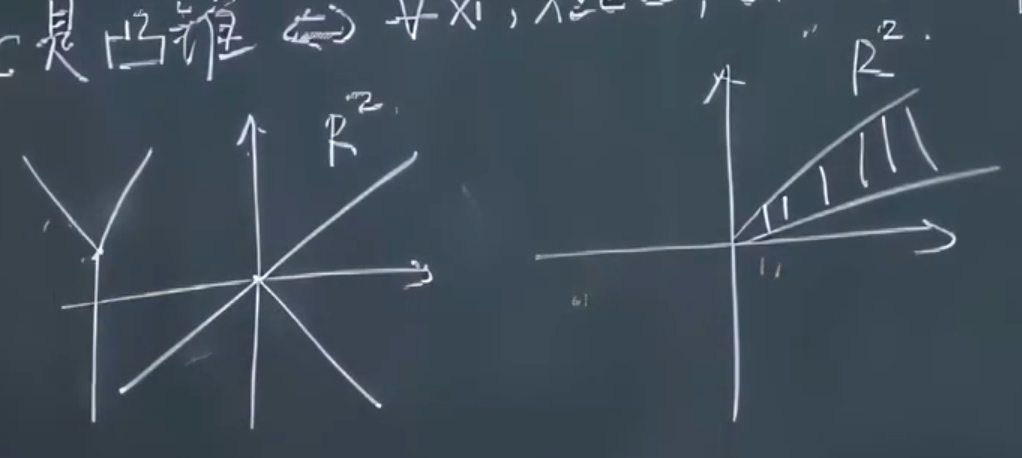 C是凸锥 ⇔ ∀x₁, x₂∈
R².
R².